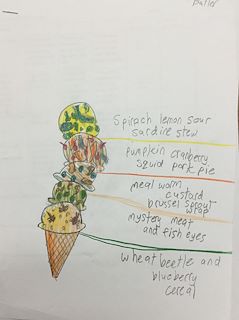 Spinach lemon sour
sardine stew
pumpkin cranberry
squid pork pie
meal worm
custard
brussel sprout
wrap
mystery meat
and fish eyes
wheat beetle and
blueberry
cereal